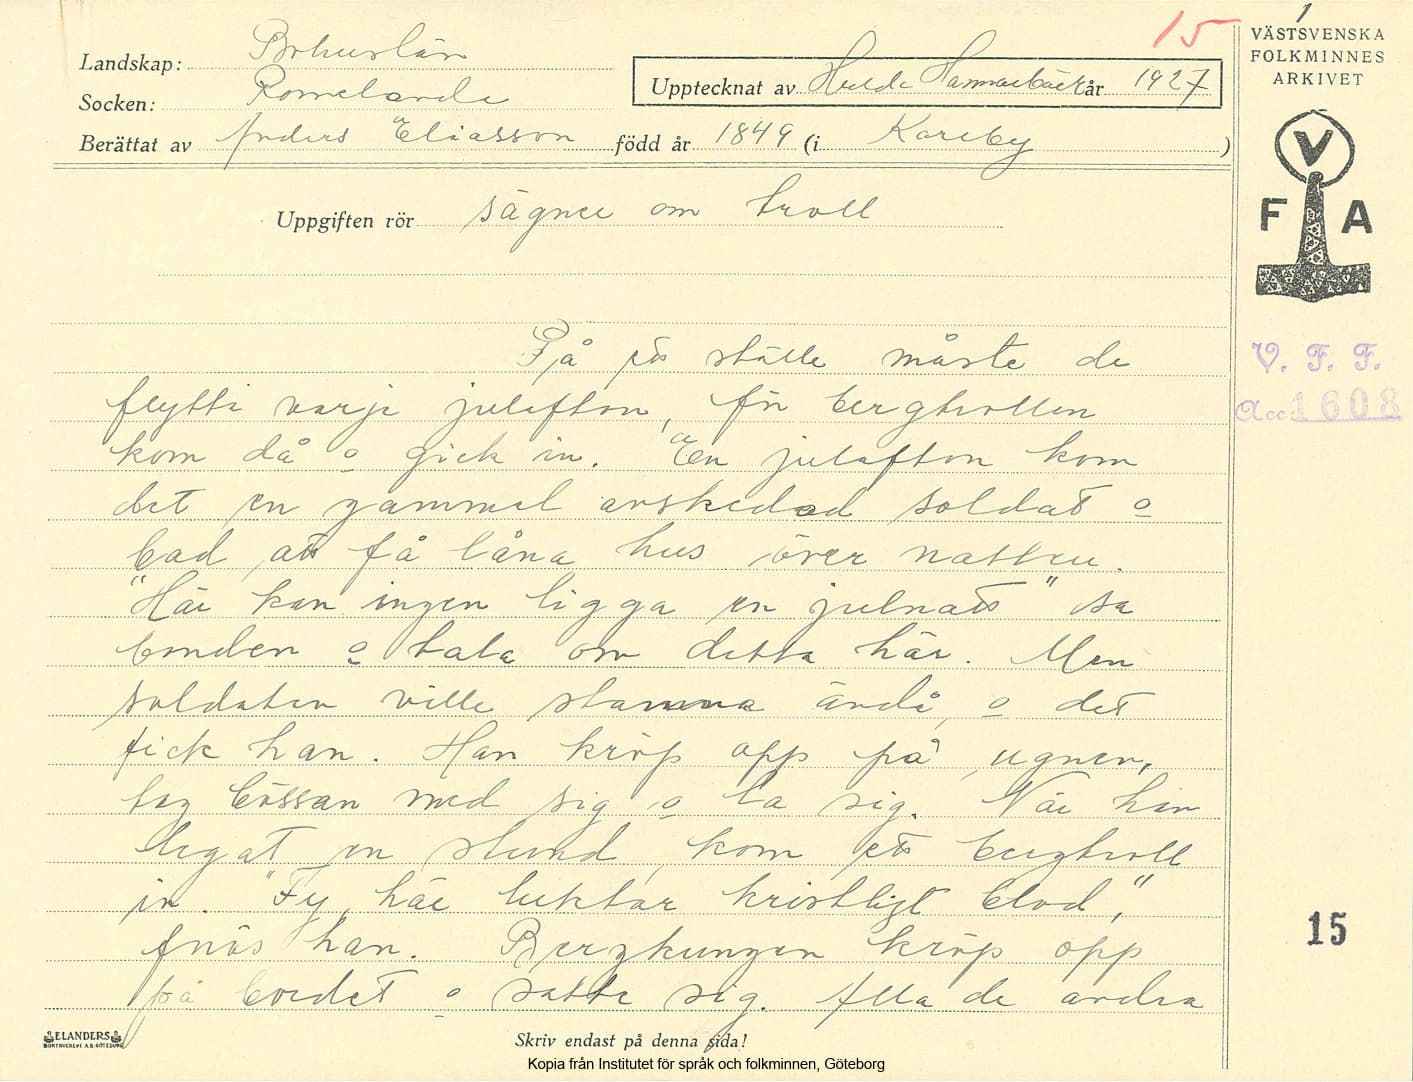 15
1
VÄSTSVENSKA
FOLKMINNES
ARKIVET
Landskap: Bohuslän
Socken: Romelanda
Upptecknat av Hulda Hammarbäck år 1927
Berättat av Anders Eliasson född år 1849 (i Kareby )
V
F A
Uppgiften rör sägner om troll
På ett ställe måste de
flytta varje julafton, för bergtrollen
kom då o gick in. En julafton kom
det en gammel avskedad soldat o
bad att få låna hus över natten.
"Här kan ingen ligga en julnatt" sa
bonden o tala om detta här. Men
soldaten ville stanna ändå, o det
fick han. Han kröp opp på ugnen,
tog bössan med sig o la sig. När han
legat en stund, kom ett bergtroll
in. "Fy, här luktar kristligt blod,"
fnös han. Bergkungen kröp opp
på bordet o satte sig. Alla de andra
V. F. F.
Acc 1608
15
ELANDERS
BOKTRYCKERI A.B. GÖTEBORG
Skriv endast på denna sida!
Kopia från Institutet för språk och folkminnen, Göteborg